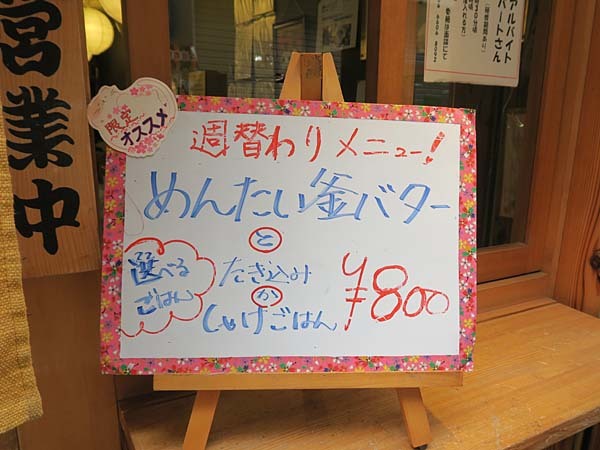 営業中
限定
オススメ
週替わりメニュー!
めんたい釜バター
と
選べる
ごはん
たき込み
か
しゃけごはん
¥800
アルバイト
パートさん